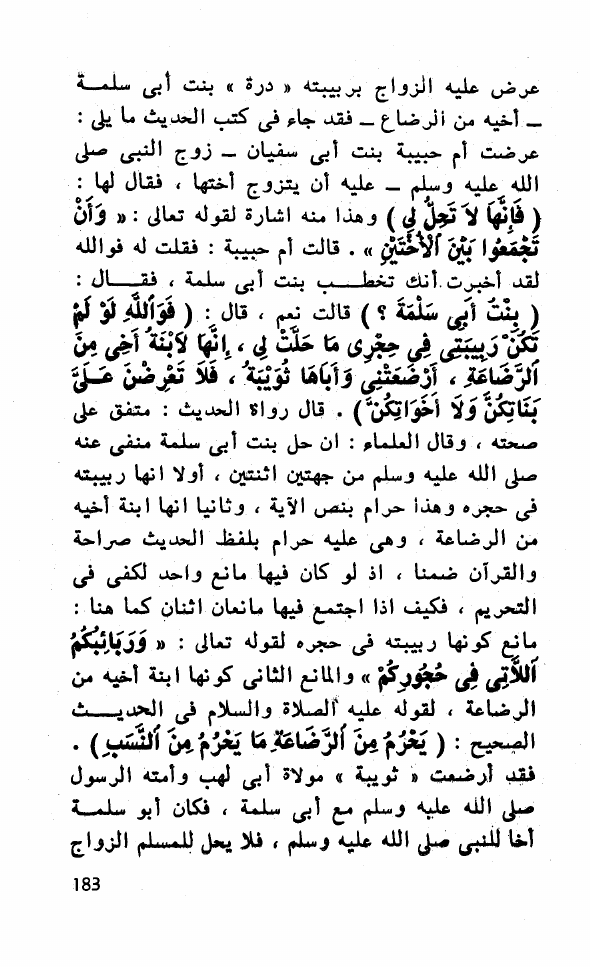 عرض عليه الزواج بربيبته « درة » بنت أبى سلمة
– أخيه من الرضاع – فقد جاء فى كتب الحديث ما يلى :
عرضت أم حبيبة بنت أبى سفيان – زوج النبى صلى
الله عليه وسلم – عليه أن يتزوج أختها ، فقال لها :
( فَإِنَّهَا لاَ تَحِلُّ لِي ) وهذا منه اشارة لقوله تعالى : « وَأَنْ
تَجْمَعُوا بَيْنَ ٱلْأُخْتَيْنِ » . قالت أم حبيبة : فقلت له فوالله
لقد أخبرت أنك تخطب بنت أبى سلمة ، فقال :
( بِنْتُ أَبِي سَلَمَةَ ؟ ) قالت نعم ، قال : ( فَوَٱللَّهِ لَوْ لَمْ
تَكُنْ رَبِيبَتِى فِي حِجْرِى مَا حَلَّتْ لِى ، إِنَّهَا لَابْنَةُ أَخِى مِنَ
ٱلرَّضَاعَةِ ، أَرْضَعَتْنِى وَأَبَاهَا ثُوَيْبَةُ ، فَلَا تَعْرِضْنَ عَلَىَّ
بَنَاتِكُنَّ وَلَا أَخَوَاتِكُنَّ ) . قال رواة الحديث : متفق على
صحته ، وقال العلماء : ان حل بنت أبى سلمة منفى عنه
صلى الله عليه وسلم من جهتين اثنتين ، أولا انها ربيبته
فى حجره وهذا حرام بنص الآية ، وثانيا انها ابنة أخيه
من الرضاعة ، وهى عليه حرام بلفظ الحديث صراحة
والقرآن ضمنا ، اذ لو كان فيها مانع واحد لكفى فى
التحريم ، فكيف اذا اجتمع فيها مانعان اثنان كما هنا :
مانع كونها ربيبته فى حجره لقوله تعالى : « وَرَبَائِبُكُمُ
ٱللَّاتِي فِي حُجُورِكُمْ » والمانع الثانى كونها ابنة أخيه من
الرضاعة ، لقوله عليه الصلاة والسلام فى الحديث
الصحيح : ( يَحْرُمُ مِنَ ٱلرَّضَاعَةِ مَا يَحْرُمُ مِنَ ٱلنَّسَبِ ) .
فقد أرضعت « ثويبة » مولاة أبى لهب وأمته الرسول
صلى الله عليه وسلم مع أبى سلمة ، فكان أبو سلمة
أخا للنبى صلى الله عليه وسلم ، فلا يحل للمسلم الزواج
183